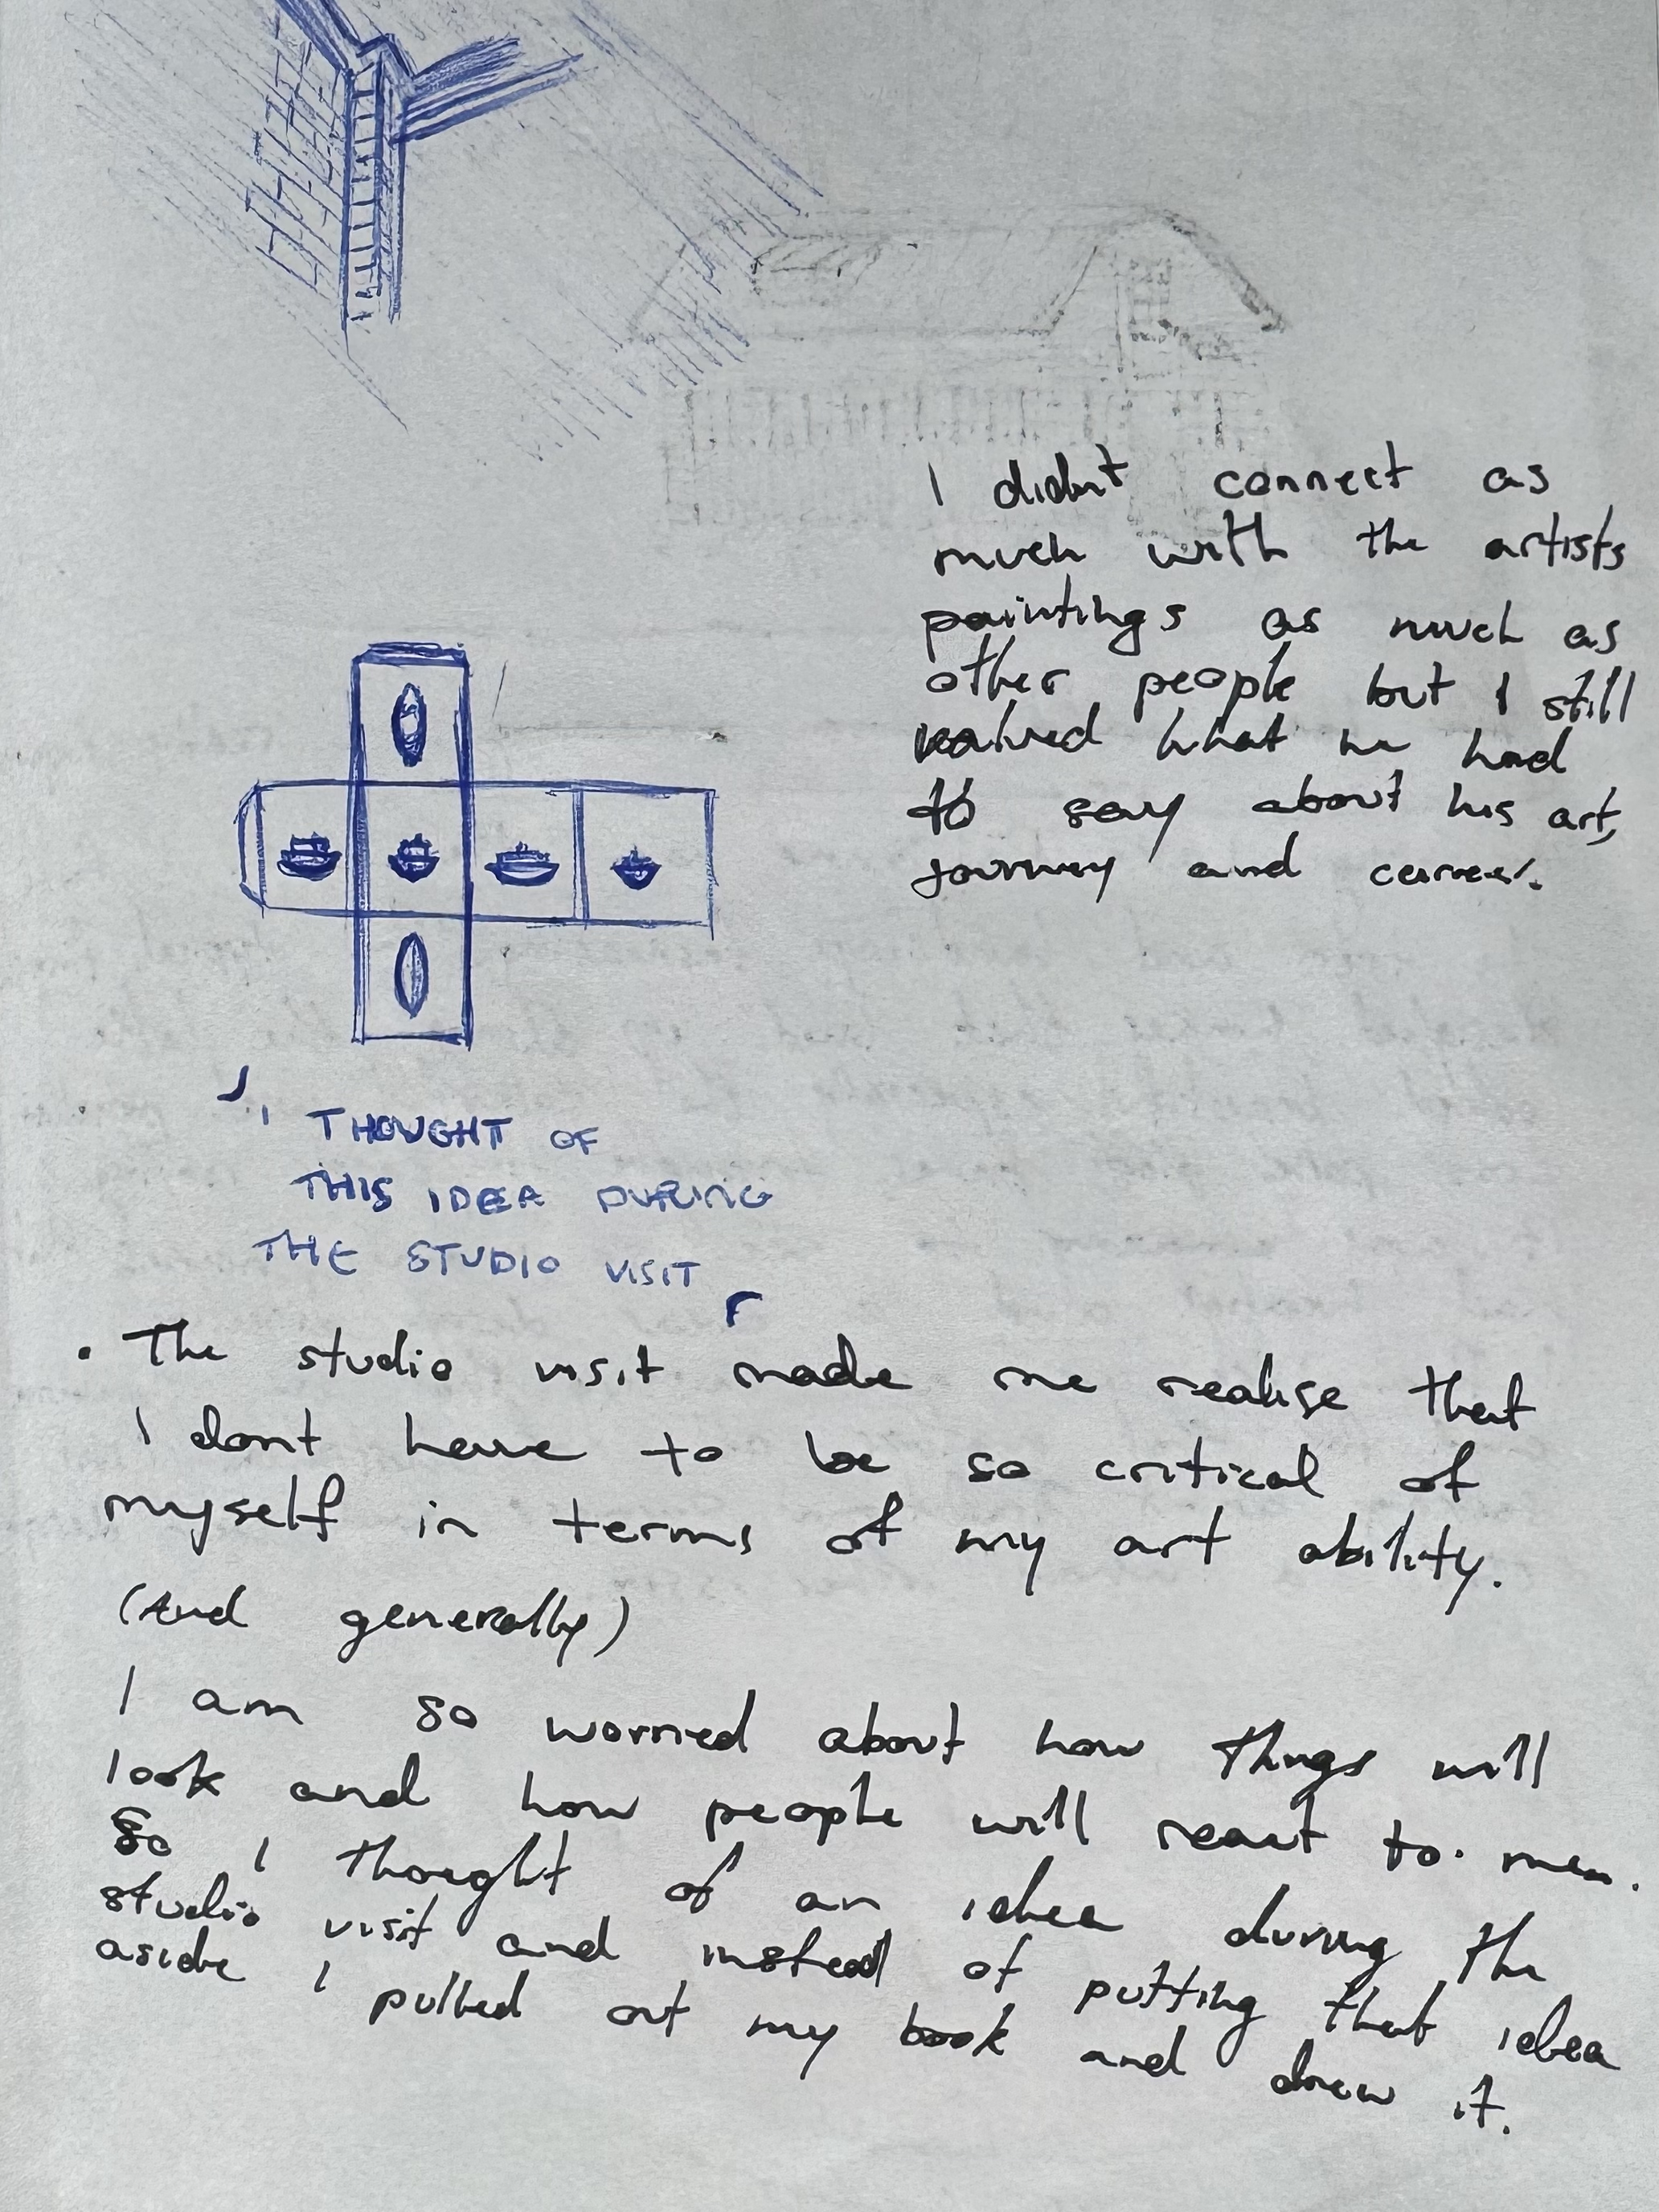 I didn't connect as
much with the artists
paintings as much as
other people but I still
valued what he had
to say about his art,
journey and career.
I THOUGHT OF
THIS IDEA DURING
THE STUDIO VISIT
• The studio visit made me realise that
I dont have to be so critical of
myself in terms of my art ability.
(And generally)
I am so worried about how things will
look and how people will react to. them.
So I thought of an idea during the
studio visit and instead of putting that idea
aside I pulled out my book and drew it.